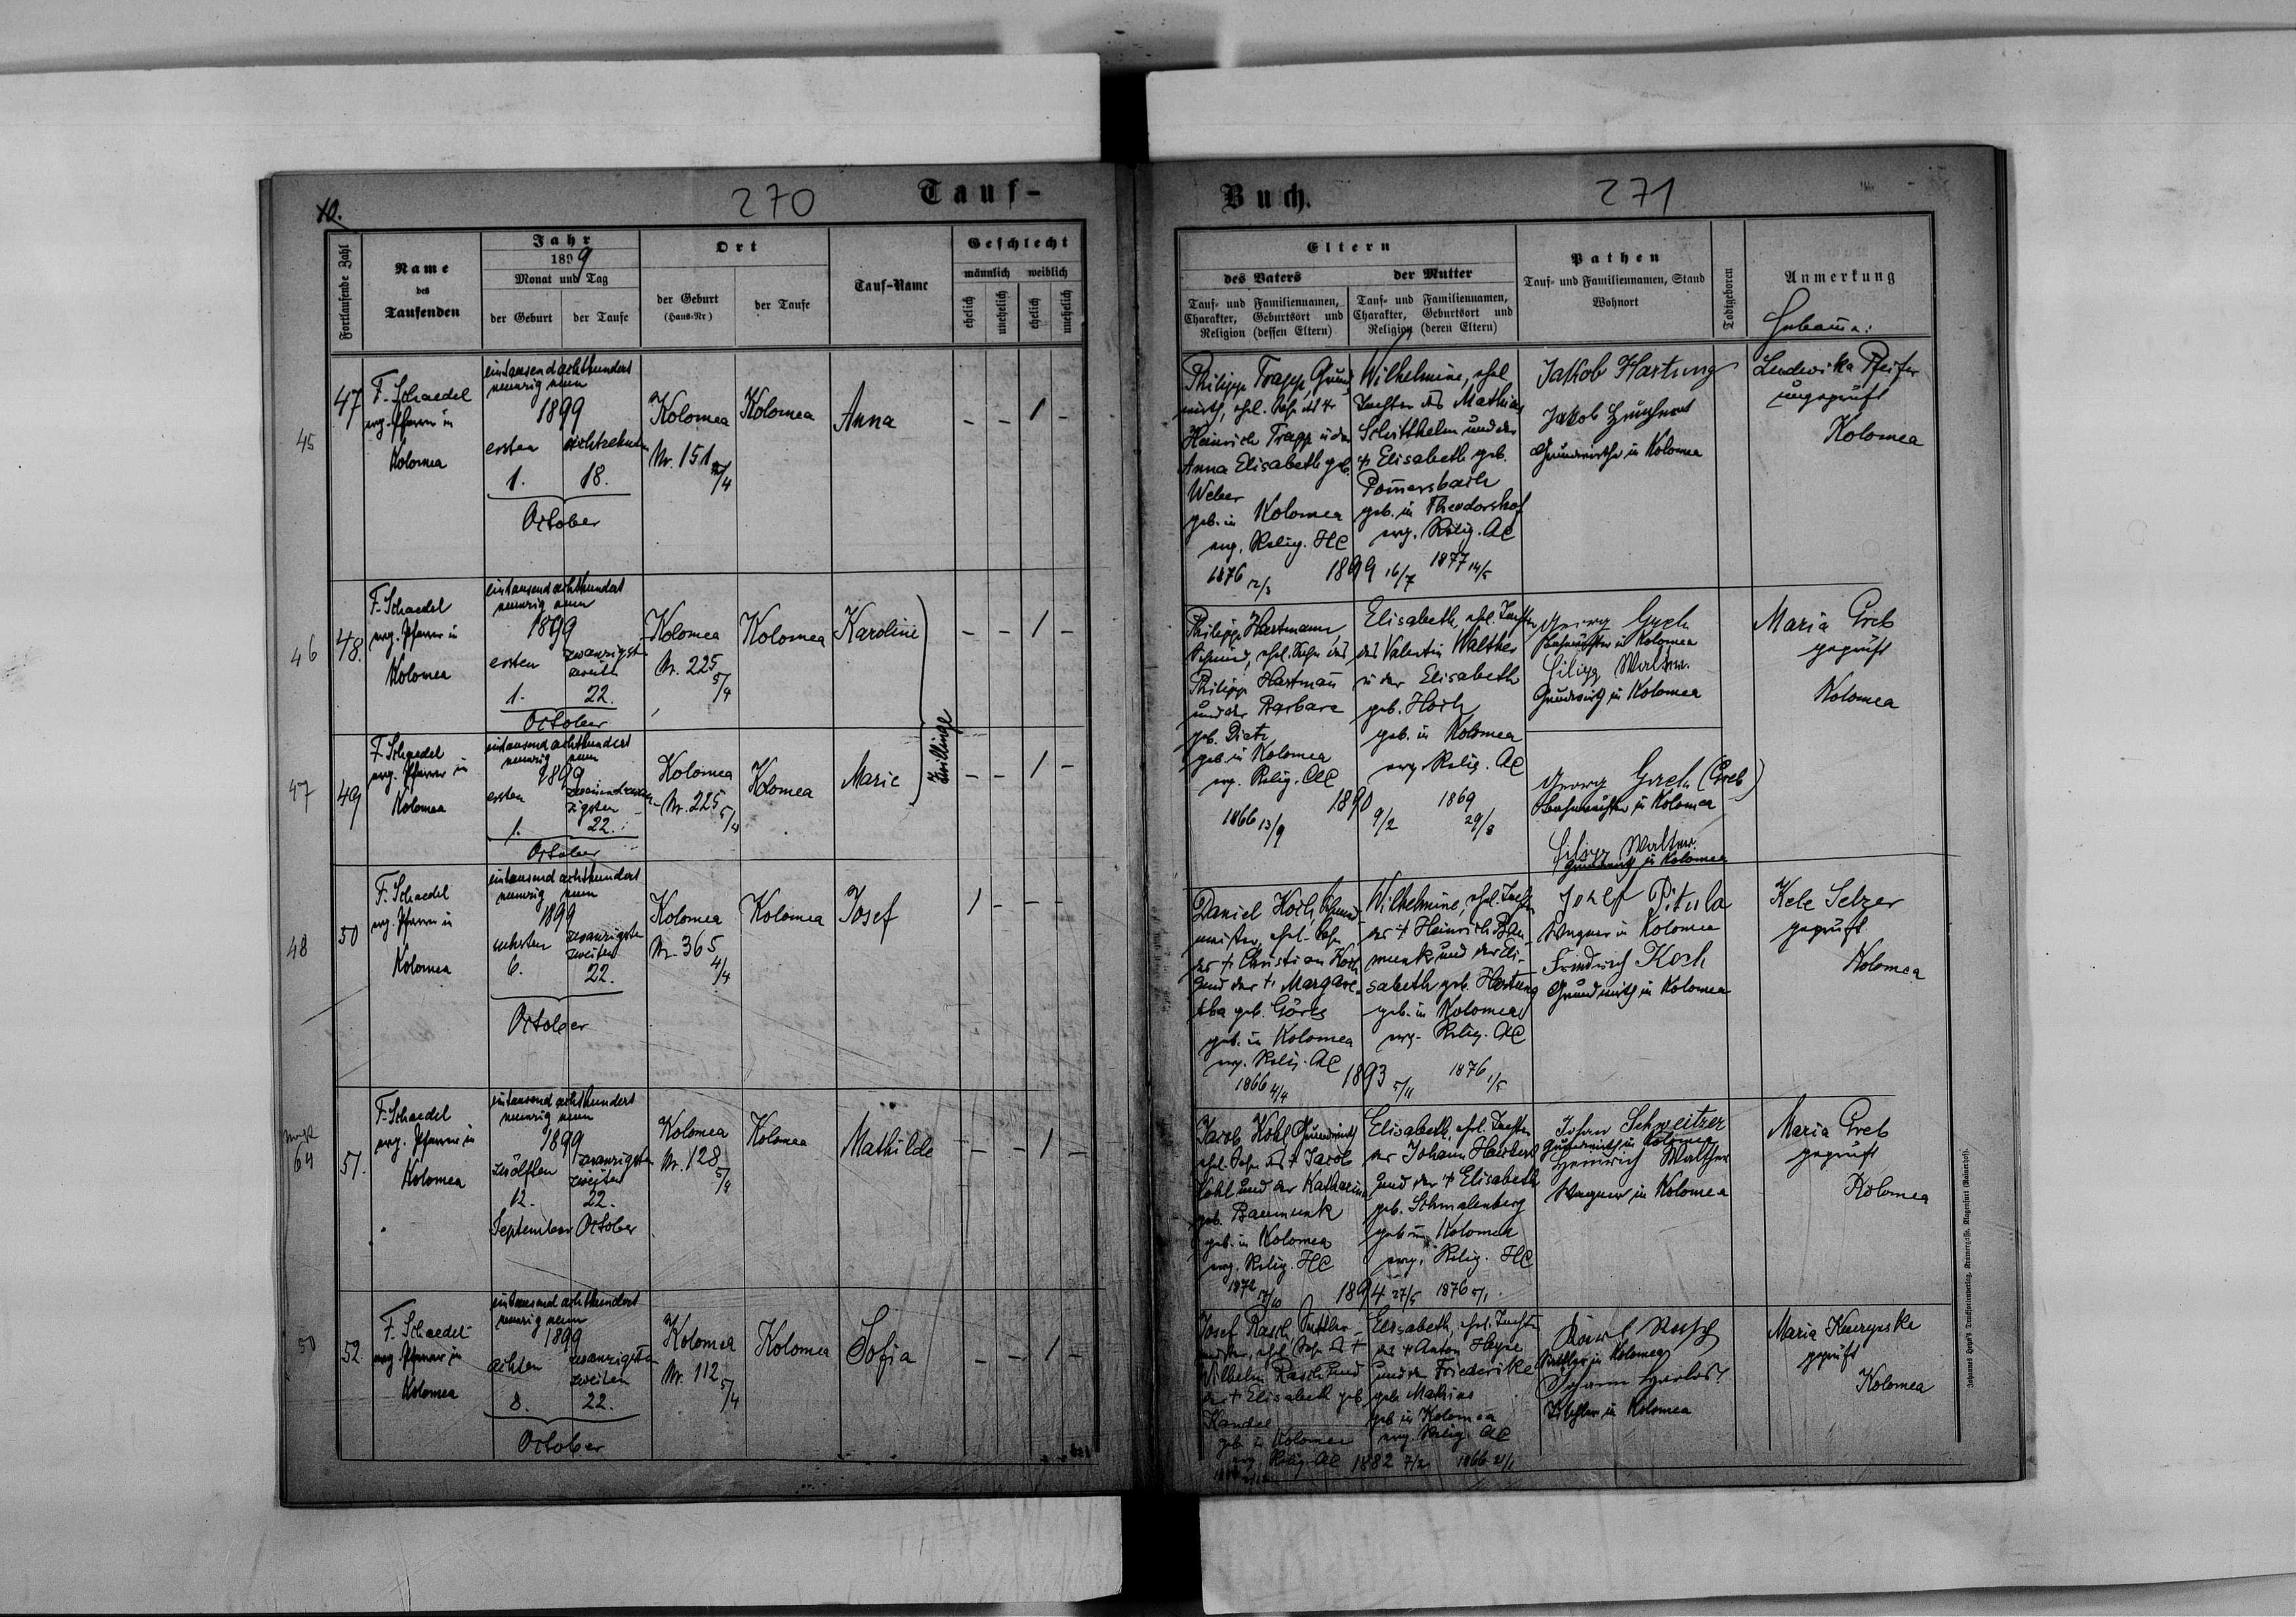 10.
270
Tauf-
Fortlaufende Zahl
Name
des
Taufenden
Jahr
1899
Monat und Tag
der Geburt
der Taufe
Ort
der Geburt
(Haus-Nr)
der Taufe
Tauf-Name
Geschlecht
männlich
weiblich
ehelich
unehelich
ehelich
unehelich
45
47
F. Schaedel
evg. Pfarrer in
Kolomea
eintausend achthundert
neunzig neun
1899
ersten
achtzehnten
1.
18.
October
Kolomea
Nr. 151
Kolomea
Anna
– – 1 –
46
48.
F. Schaedel
evg. Pfarrer in
Kolomea
eintausend achthundert
neunzig neun
1899
ersten
1.
22.
October
Kolomea
Nr. 225
5/4
Kolomea
Karoline
– – 1 –
Zwillinge
47
49
F. Schaedel
evg. Pfarrer in
Kolomea
eintausend achthundert
neunzig neun
1899
ersten
zweiundzwan-
zigsten
1.
22.
October
Kolomea
Nr. 225
5/4
Kolomea
Marie
– – 1 –
48
50
F. Schaedel
evg. Pfarrer in
Kolomea
eintausend achthundert
neunzig neun
1899
sechsten
zwanzigste
zweiten
6.
22.
October
Kolomea
Nr. 365
4/4
Kolomea
Josef
1 – – –
64
51.
F. Schaedel
evg. Pfarrer in
Kolomea
eintausend achthundert
neunzig neun
1899
zwölften
zwanzigsten
zweiten
12.
22.
September October
Kolomea
Nr. 128
5/4
Kolomea
Mathilde
– – 1 –
50
52.
F. Schaedel
evg. Pfarrer in
Kolomea
eintausend achthundert
neunzig neun
1899
achten
zwanzigsten
zweiten
8.
22.
October
Kolomea
Nr. 112
5/4
Kolomea
Sofia
– – 1 –
Buch.
271
Eltern
des Vaters
der Mutter
Tauf- und Familiennamen,
Charakter, Geburtsort und
Religion (dessen Eltern)
Tauf- und Familiennamen,
Charakter, Geburtsort und
Religion (deren Eltern)
Pathen
Tauf- und Familiennamen, Stand
Wohnort
Todtgeboren
Anmerkung
Hebame:
Philipp Trapp, Grund-
wirth, ehel. Sohn des
Heinrich Trapp u der
Anna Elisabeth geb.
Weber
geb. in Kolomea
evg. Relig. HC
1876 12/3
1899 16/7
Wilhelmine, ehel
Tochter des Mathias
Schitthelm und der
† Elisabeth geb.
Pomersbach
geb. in Theodorshof
evg. Relig. AC
1877 14/5
Jakob Hartung
Jakob
Grundwirthe in Kolomea
Ludwika Pfeifer
ungeprüft
Kolomea
Philipp Hartmann,
Schmied, ehel. Sohn des
Philipp Hartmañ
und der Barbara
geb. Dietz
geb. in Kolomea
evg. Relig. AC
1866 13/9
1890 9/2
Elisabeth, ehel. Tochter
des Valentin Walther
u der Elisabeth
geb. Hoch
geb. in Kolomea
evg. Relig. AC
1869
29/8
Georg Greb
in Kolomea
Filipp Walther.
Grundwirth in Kolomea
Georg Greb (Greb)
in Kolomea
Filipp Walther.
Grundwirth in Kolomea
Maria Greb
geprüft
Kolomea
Daniel Koch, Schmied-
meister, ehel. Sohn
des † Christian Koch
und der † Margare-
tha geb. Görtz
geb. in Kolomea
evg. Relig. AC
1866 4/4
1893 5/11
Wilhelmine, ehel. Tochter
des † Heinrich Bau-
munk und der Eli-
sabeth geb. Hartung
geb. in Kolomea
evg. Relig. AC
1876 1/5
Josef Pitula
Wagner in Kolomea
Friedrich Koch
Grundwirth in Kolomea
Kele Selzer
geprüft
Kolomea
Jacob Kohl, Grundwirth
ehel. Sohn des † Jacob
Kohl und der Katharina
geb. Baumunk
geb. in Kolomea
evg. Relig. HC
1872 17/10
1894 27/5
Elisabeth, ehel. Tochter
des Johann
und der † Elisabeth
geb. Schmalenberg
geb in Kolomea
evg. Relig. HC
1876 5/1.
Johan Schweitzer
Grundwirth in Kolomea
Heinrich Walther
Wagner in Kolomea
Maria Greb
geprüft
Kolomea
Josef Rasch, Sattler-
meister, ehel. Sohn des †
Wilhelm Rasch und
der † Elisabeth geb
Kandel
geb. in Kolomea
evg. Relig. AC
1882 7/2
Elisabeth, ehel. Tochter
des † Anton Heyse
und der Friederike
geb. Mathias
geb in Kolomea
evg. Relig. AC
1866 21/1
Karl Rasch
in Kolomea
Johann
in Kolomea
Maria
geprüft
Kolomea